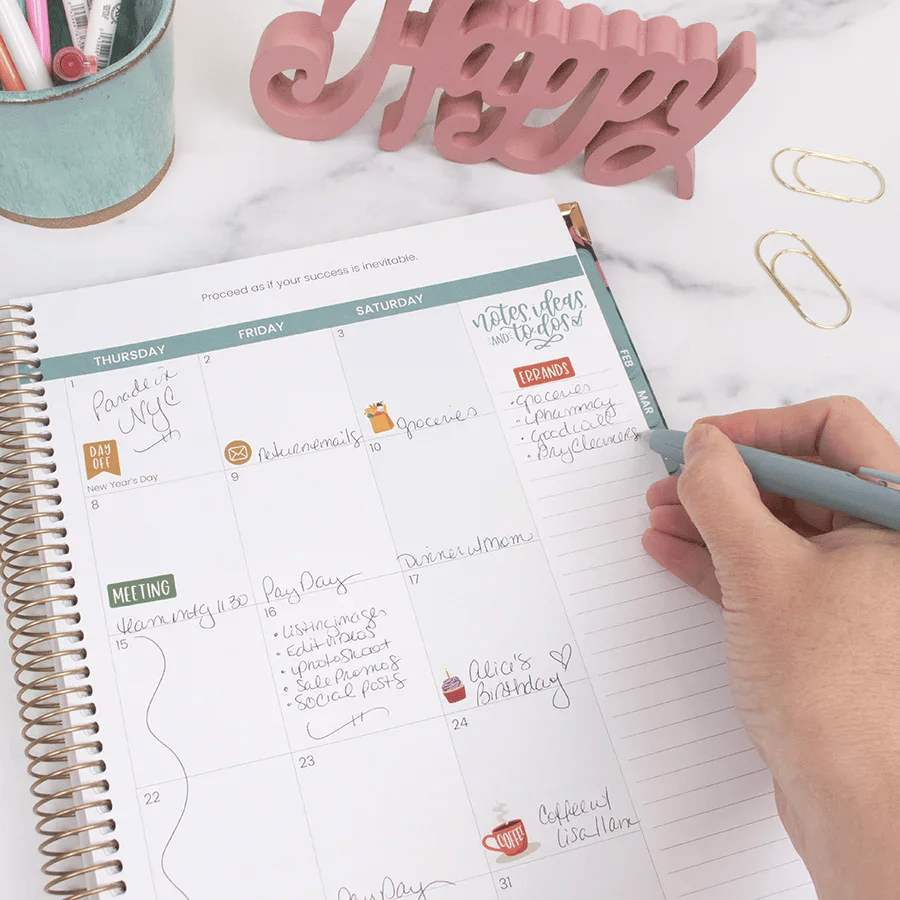 Happy
Proceed as if your success is inevitable.
THURSDAY
FRIDAY
SATURDAY
notes, ideas,
AND to dos
FEB
MAR
ERRANDS
• groceries
• pharmacy
• goodwill
• Dry Cleaners
1
Parade in
NYC
DAY
OFF
New Year's Day
2
Return emails
3
groceries
8
MEETING
team mtg 11:30
9
PayDay
10
Dinner w/ Mom
15
16
• Listing images
• Edit videos
• photoshoot
• Sale Promos
• Social Posts
17
Alice's
Birthday
22
23
PayDay
24
COFFEE
Coffee w/
Lisa 11am
31